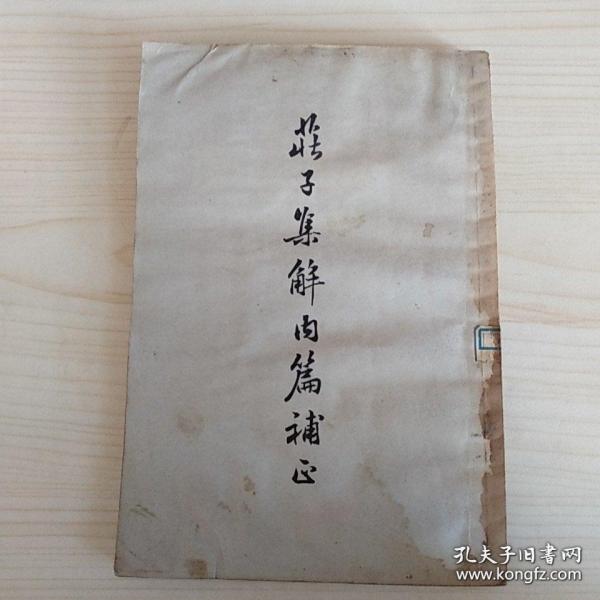 莊子集解内篇補正
孔夫子旧書网
www.kongfz.com